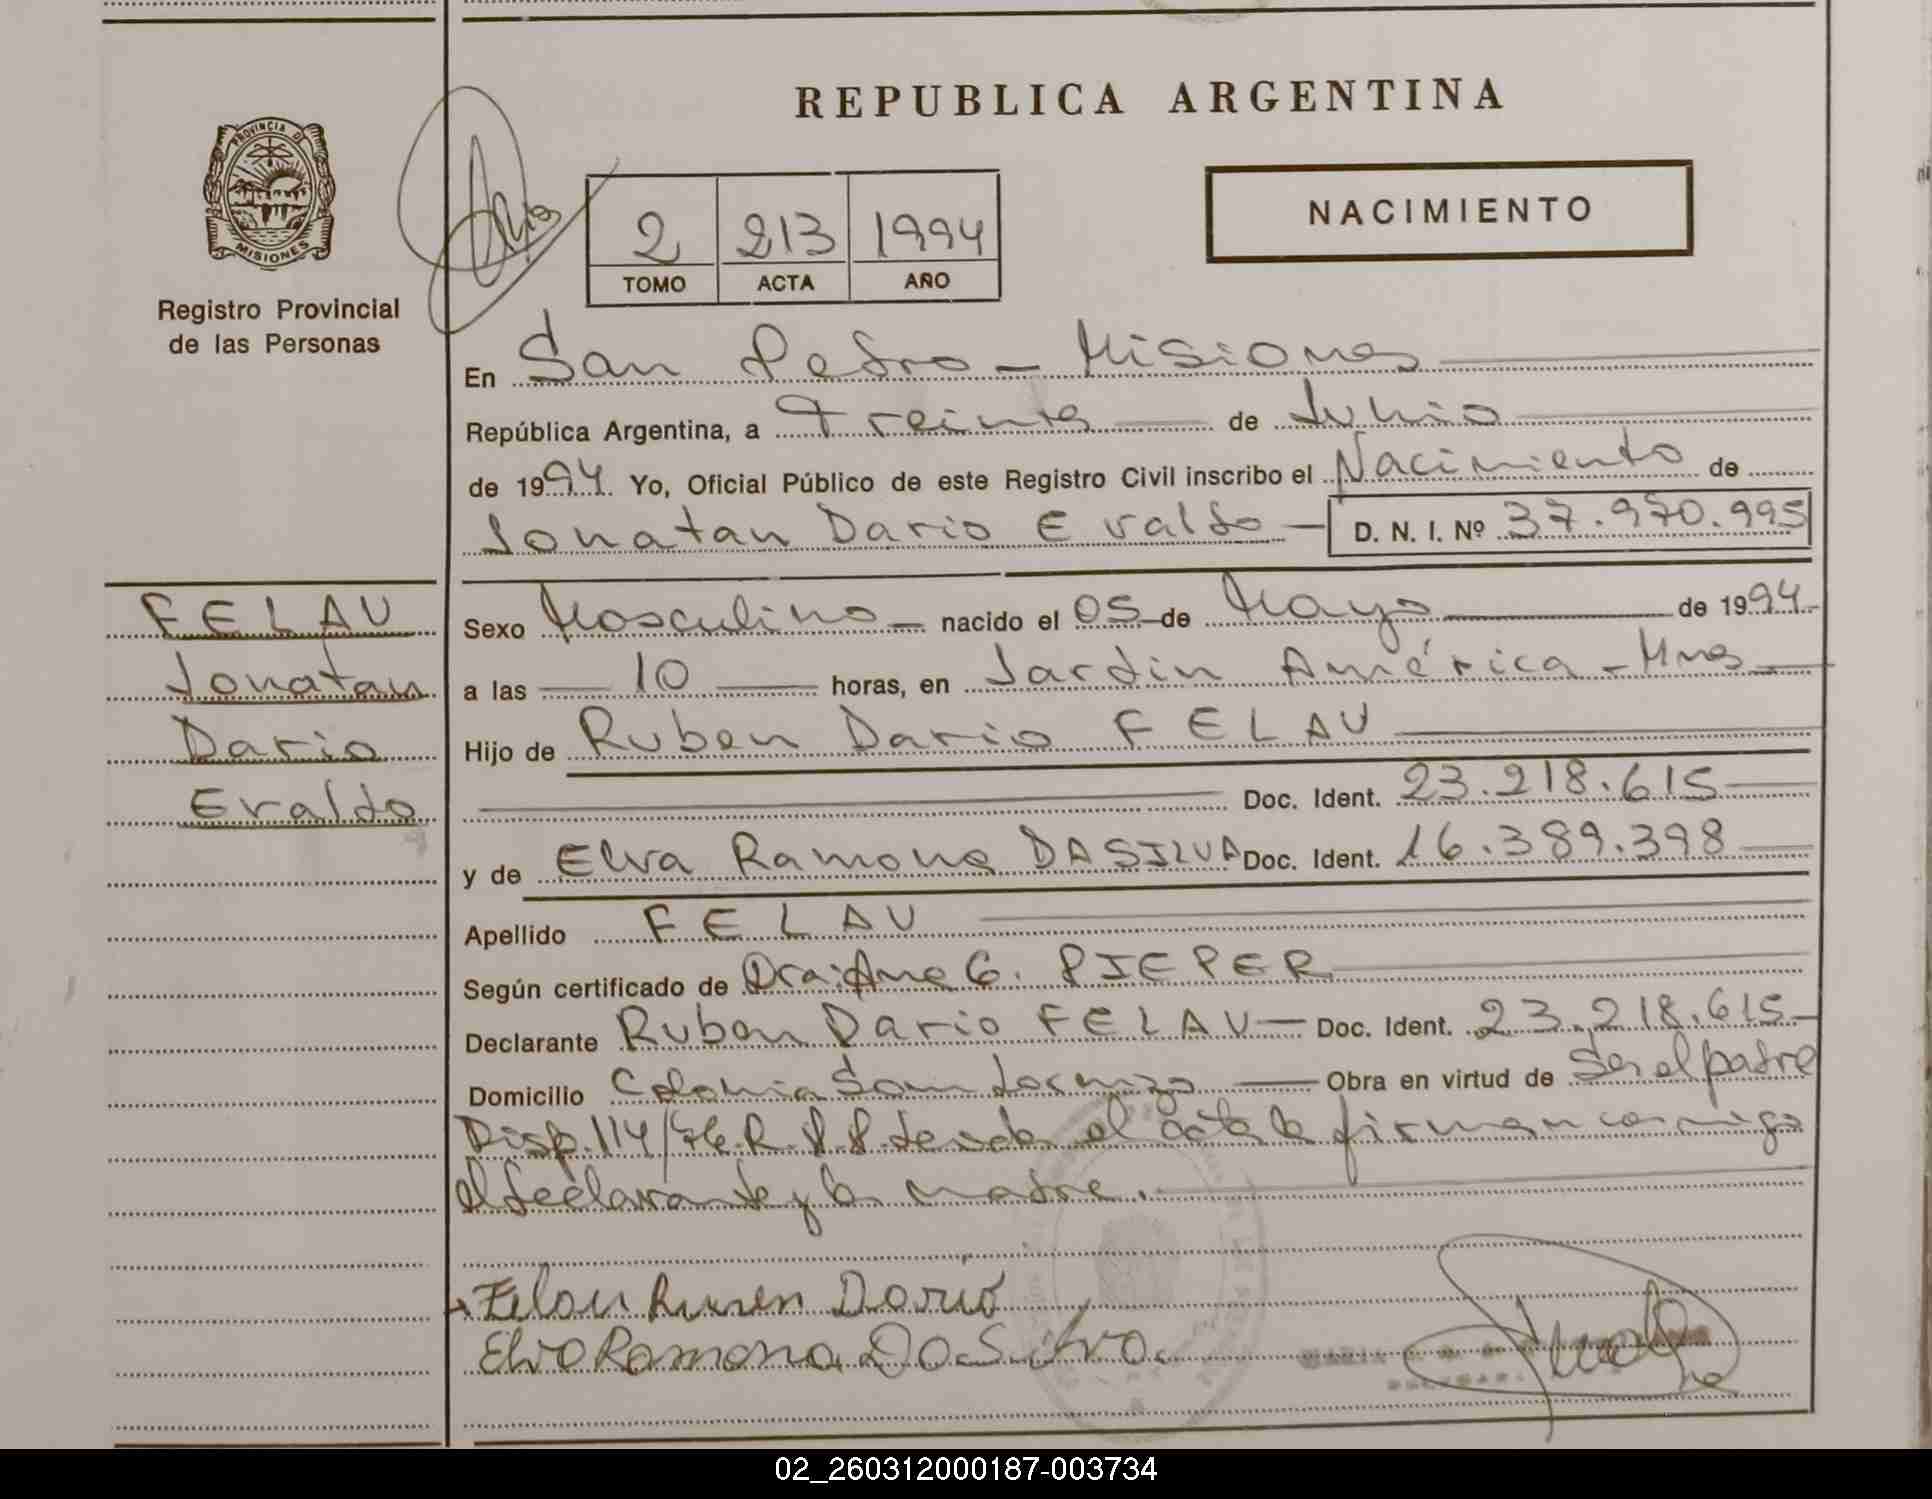 REPUBLICA ARGENTINA
PROVINCIA DE
MISIONES
Registro Provincial
de las Personas
2 213 1994
TOMO ACTA AÑO
NACIMIENTO
En San Pedro - Misiones
República Argentina, a Treinta de Julio
de 1994. Yo, Oficial Público de este Registro Civil inscribo el Nacimiento de
Jonatan Dario Evaldo - D. N. I. Nº 37.970.995
FELAU
Jonatan
Dario
Evaldo
Sexo Masculino - nacido el 05 de Mayo de 1994
a las 10 horas, en Jardin América - Mnes
Hijo de Ruben Dario FELAU
Doc. Ident. 23.218.615
y de Elva Ramona DASILVA Doc. Ident. 16.389.398
Apellido FELAU
Según certificado de Dra. G. PIEPER
Declarante Ruben Dario FELAU - Doc. Ident. 23.218.615
Domicilio Colonia San Lorenzo Obra en virtud de Ser el padre
Disp. 114/ R.P.P. el acta la firman conmigo
el declarante y la madre.
Felau Ruben Dario
Elva Ramona DaSilva.
02_260312000187-003734